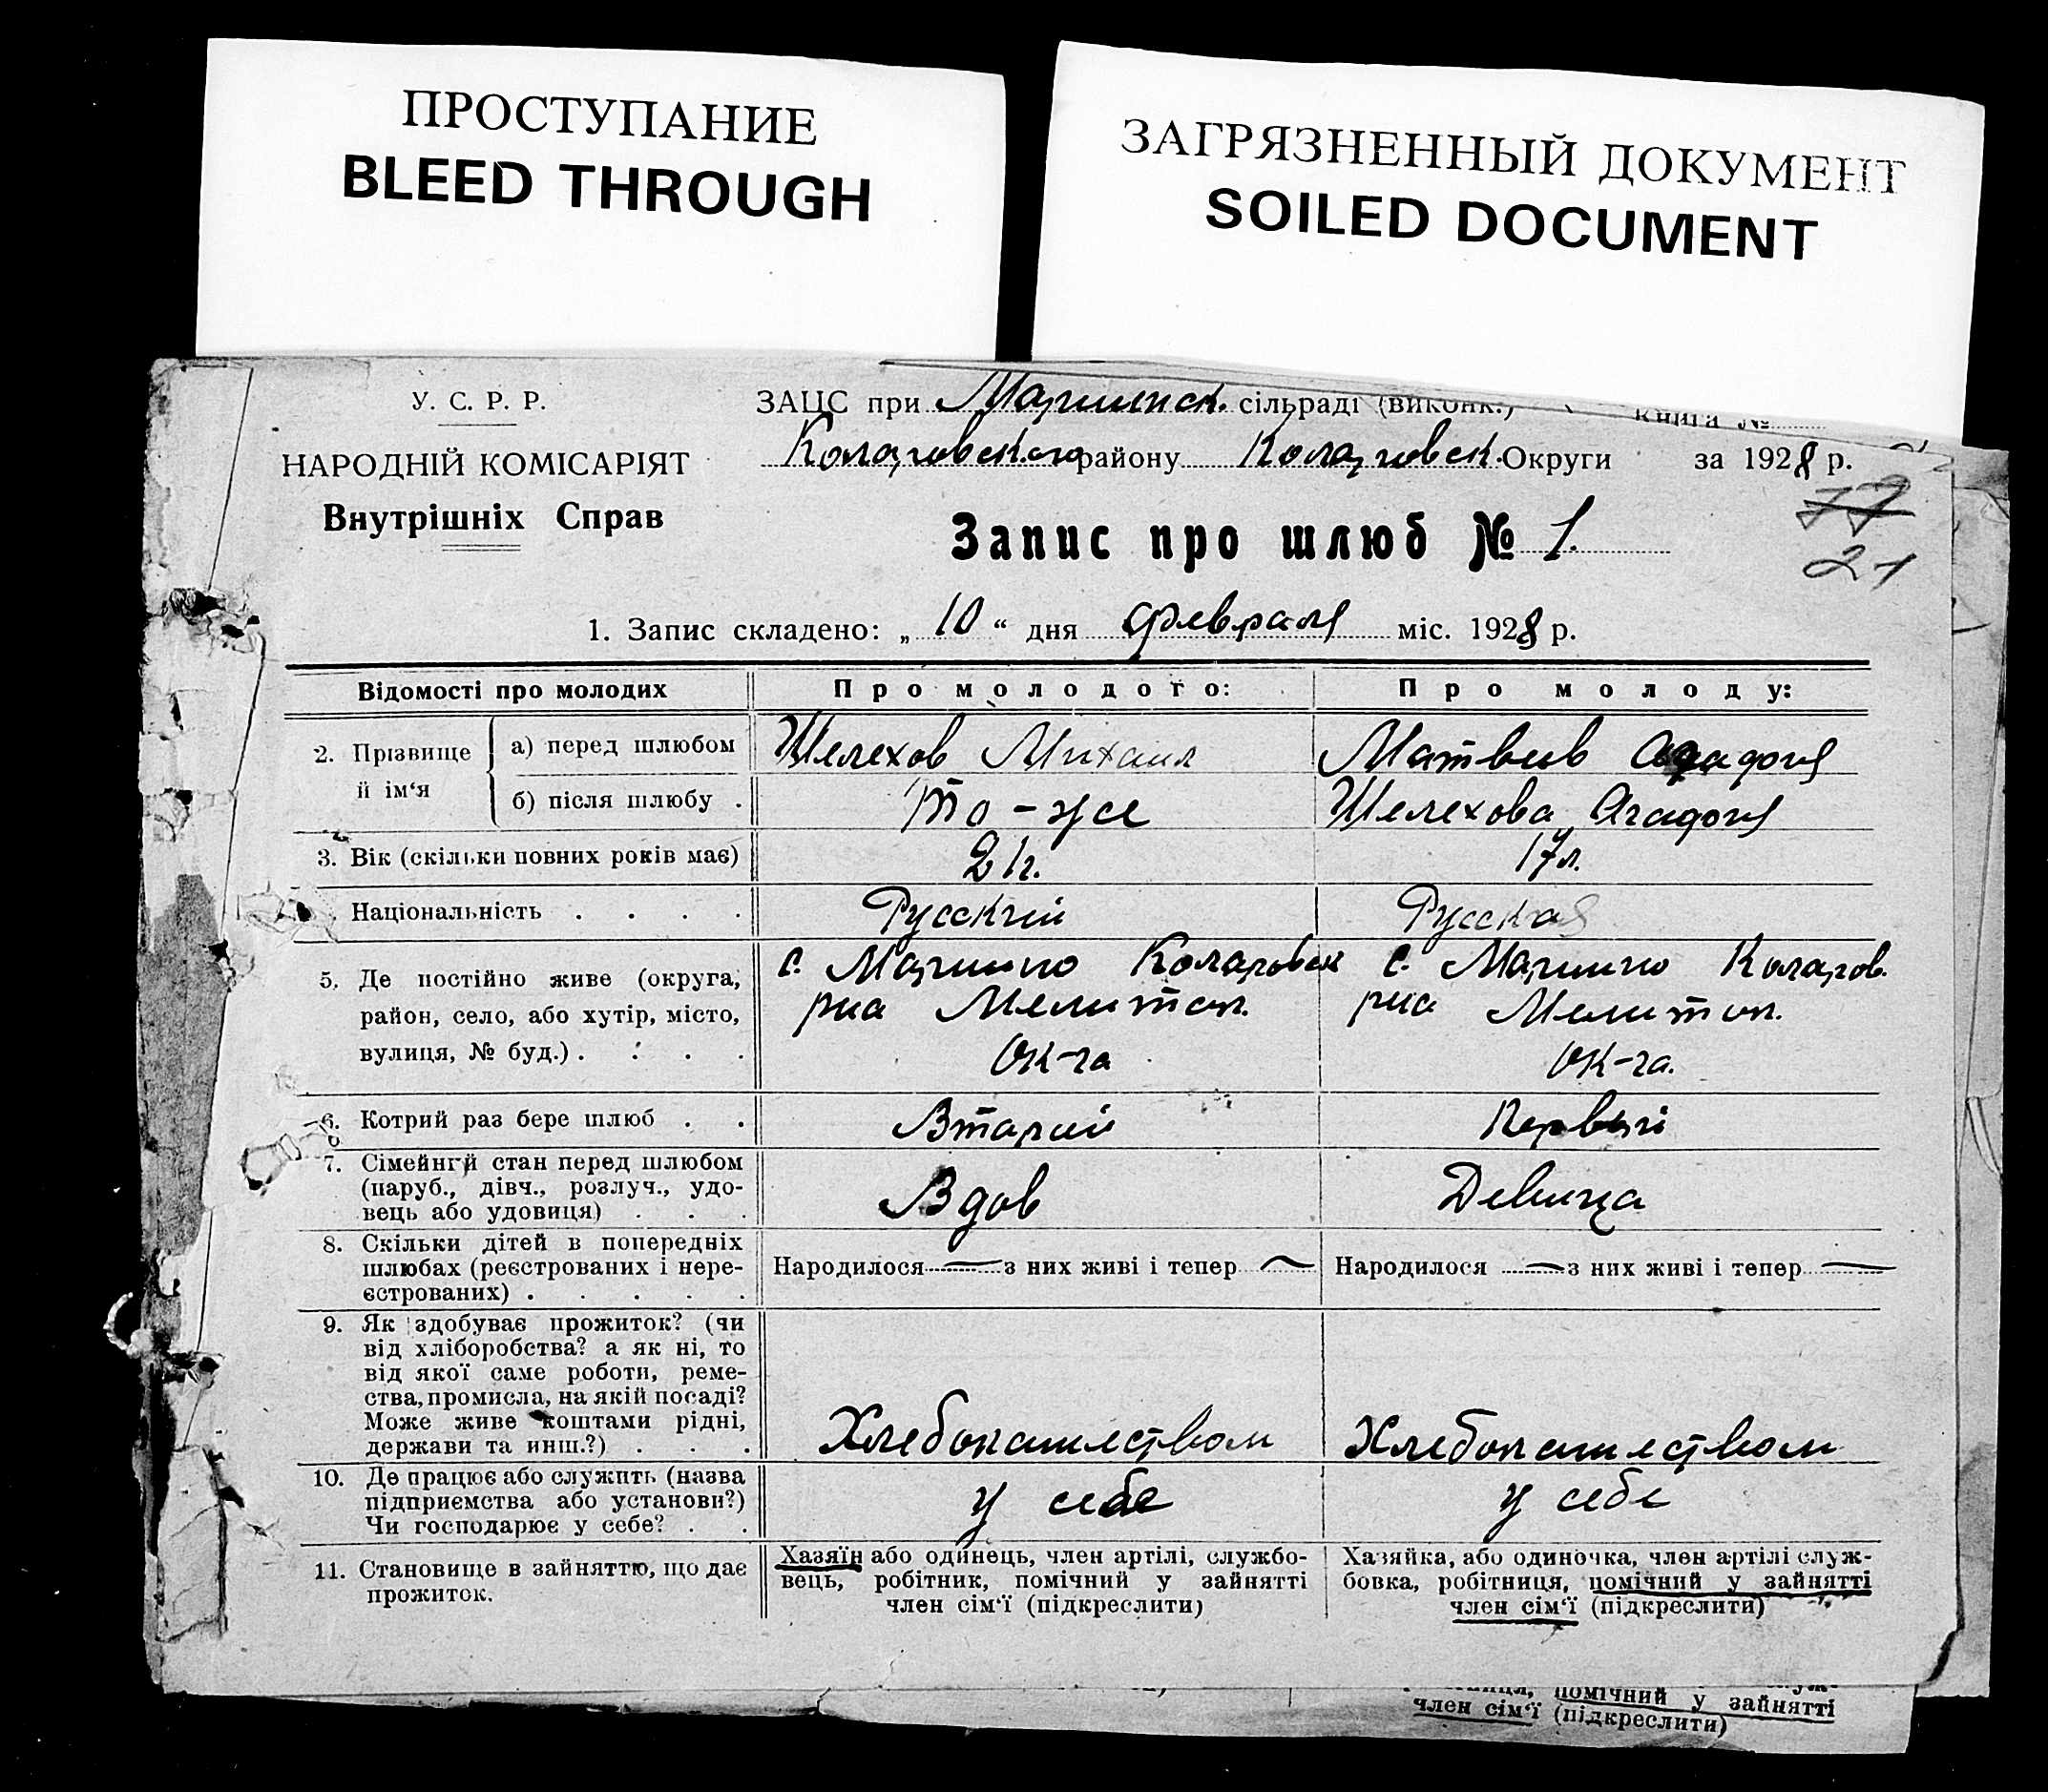 ПРОСТУПАНИЕ
BLEED THROUGH
ЗАГРЯЗНЕННЫЙ ДОКУМЕНТ
SOILED DOCUMENT
У. С. Р. Р.
НАРОДНІЙ КОМІСАРІЯТ
Внутрішніх Справ
ЗАЦС при Мариинск. сільраді (виконк.) Книга №
Коларовского району Коларовск. Округи за 1928 р.
77
21
Запис про шлюб № 1.
1. Запис складено: „ 10 “ дня февраля міс. 1928 р.
Відомості про молодих Про молодого: Про молоду:
2. Прізвище й ім‘я
а) перед шлюбом Шелехов Михаил Матвиив Агафия
б) після шлюбу . То-же Шелехова Агафия
3. Вік (скільки повних років має) 21г. 17л.
Національність . . . . Русский Русская
5. Де постійно живе (округа, район, село, або хутір, місто, вулиця, № буд.) . . . .
с. Марино Коларовск
рна Мелитоп.
ок-га
с. Марино Коларов.
рна Мелитоп.
ок-га.
6. Котрий раз бере шлюб . . Вторий Первый
7. Сімейний стан перед шлюбом
(паруб., дівч., розлуч., удо-
вець або удовиця) . . . Вдов Девица
8. Скільки дітей в попередніх
шлюбах (реєстрованих і нере-
єстрованих) . . . . .
Народилося — з них живі і тепер — Народилося — з них живі і тепер —
9. Як здобуває прожиток? (чи
від хліборобства? а як ні, то
від якої саме роботи, реме-
ства, промисла, на якій посаді?
Може живе коштами рідні,
держави та инш.?) . . . Хлебопашеством Хлебопашеством
10. Де працює або служить (назва
підприємства або установи?)
Чи господарює у себе? . . у себе у себе
11. Становище в зайняттю, що дає
прожиток.
Хазяїн або одинець, член артілі, службо-
вець, робітник, помічний у зайнятті
член сім‘ї (підкреслити)
Хазяйка, або одиночка, член артілі служ-
бовка, робітниця, помічний у зайнятті
член сім‘ї (підкреслити)
помічний у зайнятті
член сім‘ї (підкреслити)